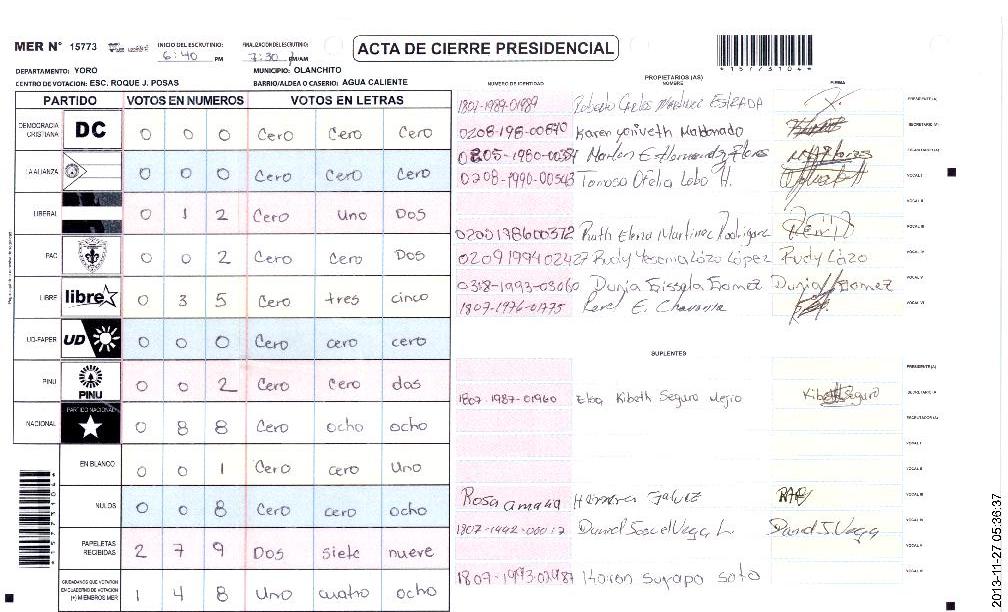 MER N° 15773
INICIO DEL ESCRUTINIO: 6:40 PM
FINALIZACION DEL ESCRUTINIO: 7:30 PM/AM
ACTA DE CIERRE PRESIDENCIAL
DEPARTAMENTO: YORO
MUNICIPIO: OLANCHITO
CENTRO DE VOTACION: ESC. ROQUE J. POSAS
BARRIO/ALDEA O CASERIO: AGUA CALIENTE
PARTIDO VOTOS EN NUMEROS VOTOS EN LETRAS
DEMOCRACIA CRISTIANA DC 0 0 0 Cero Cero Cero
LA ALIANZA 0 0 0 Cero Cero Cero
LIBERAL 0 1 2 Cero Uno Dos
PAC 0 0 2 Cero Cero Dos
LIBRE libre 0 3 5 Cero tres cinco
UD-FAPER UD 0 0 0 Cero cero cero
PINU PINU 0 0 2 Cero Cero dos
NACIONAL PARTIDO NACIONAL 0 8 8 Cero ocho ocho
EN BLANCO 0 0 1 Cero cero Uno
NULOS 0 0 8 Cero cero ocho
PAPELETAS RECIBIDAS 2 7 9 Dos siete nueve
CIUDADANOS QUE VOTARON EN CUADERNO DE VOTACION (+) MIEMBROS MER 1 4 8 Uno cuatro ocho
PROPIETARIOS (AS)
NUMERO DE IDENTIDAD NOMBRE FIRMA
1807-1989-01989 Roberto Carlos Martinez ESTRADA PRESIDENTE(A)
Karen Yoriveth Maldonado SECRETARIO (A)
Marlen
Tomasa Ofelia Lobo H. VOCAL I
VOCAL II
Ruth Elena Martinez Rodriguez VOCAL III
0209199402427 Rudy Yesenia Lozo López Rudy Lozo VOCAL IV
0318-1993-03060 Dunia Gomez Dunia Gomez VOCAL V
1807-1976-01775 E. VOCAL VI
SUPLENTES
PRESIDENTE(A)
1807-1987-01960 Elba Kibeth Seguro Mejio Kibeth Seguro SECRETARIO (A)
ESCRUTADOR (A)
VOCAL I
VOCAL II
Rosa amalia VOCAL III
Daniel Vega L. Daniel S. Vega VOCAL IV
VOCAL V
soto VOCAL VI
15773104
2013-11-27 05:36:37